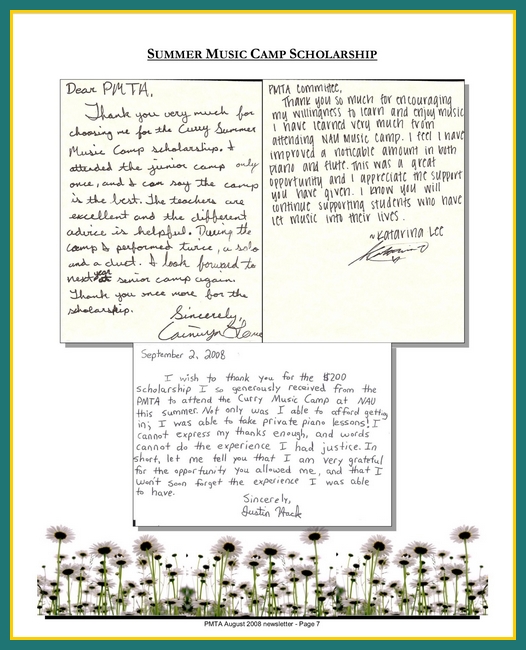 SUMMER MUSIC CAMP SCHOLARSHIP
Dear PMTA,
Thank you very much for
choosing me for the Curry Summer
Music Camp scholarship. I
attended the junior camp only
once, and I can say the camp
is the best. The teachers are
excellent and the different
advice is helpful. During the
camp I performed twice, a solo
and a duet. I look forward to
next year at senior camp again.
Thank you once more for the
scholarship.
Sincerely,
PMTA Committee,
Thank you so much for encouraging
my willingness to learn and enjoy music
I have learned very much from
attending NAU Music Camp. I feel I have
improved a noticable amount in both
piano and flute. This was a great
opportunity and I appreciate the support
you have given. I know you will
continue supporting students who have
let music into their lives.
~Katarina Lee
September 2, 2008
I wish to thank you for the $200
scholarship I so generously received from the
PMTA to attend the Curry Music Camp at NAU
this summer. Not only was I able to afford getting
in; I was able to take private piano lessons! I
cannot express my thanks enough, and words
cannot do the experience I had justice. In
short, let me tell you that I am very grateful
for the opportunity you allowed me, and that I
won't soon forget the experience I was able
to have.
Sincerely,
Justin Hack
PMTA August 2008 newsletter - Page 7